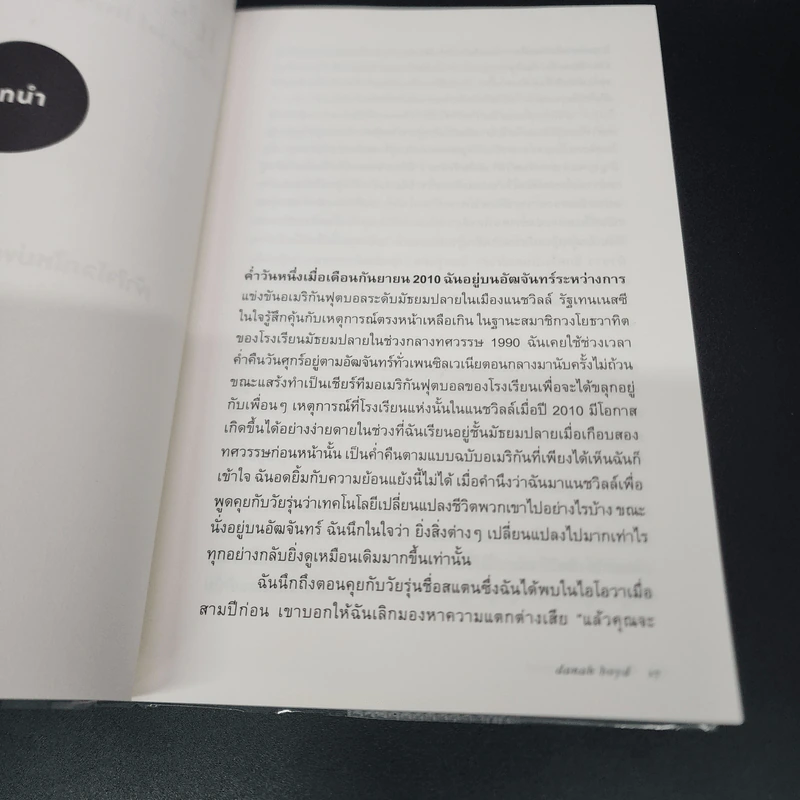 ทนำ
ค่ำวันหนึ่งเมื่อเดือนกันยายน 2010 ฉันอยู่บนอัฒจันทร์ระหว่างการ
แข่งขันอเมริกันฟุตบอลระดับมัธยมปลายในเมืองแนชวิลล์ รัฐเทนเนสซี
ในใจรู้สึกคุ้นกับเหตุการณ์ตรงหน้าเหลือเกิน ในฐานะสมาชิกวงโยธวาทิต
ของโรงเรียนมัธยมปลายในช่วงกลางทศวรรษ 1990 ฉันเคยใช้ช่วงเวลา
ค่ำคืนวันศุกร์อยู่ตามอัฒจันทร์ทั่วเพนซิลเวเนียตอนกลางมานับครั้งไม่ถ้วน
ขณะแสร้งทำเป็นเชียร์ทีมอเมริกันฟุตบอลของโรงเรียนเพื่อจะได้ขลุกอยู่
กับเพื่อนๆ เหตุการณ์ที่โรงเรียนแห่งนั้นในแนชวิลล์เมื่อปี 2010 มีโอกาส
เกิดขึ้นได้อย่างง่ายดายในช่วงที่ฉันเรียนอยู่ชั้นมัธยมปลายเมื่อเกือบสอง
ทศวรรษก่อนหน้านั้น เป็นค่ำคืนตามแบบฉบับอเมริกันที่เพียงได้เห็นฉันก็
เข้าใจ ฉันอดยิ้มกับความย้อนแย้งนี้ไม่ได้ เมื่อคำนึงว่าฉันมาแนชวิลล์เพื่อ
พูดคุยกับวัยรุ่นว่าเทคโนโลยีเปลี่ยนแปลงชีวิตพวกเขาไปอย่างไรบ้าง ขณะ
นั่งอยู่บนอัฒจันทร์ ฉันนึกในใจว่า ยิ่งสิ่งต่างๆ เปลี่ยนแปลงไปมากเท่าไร
ทุกอย่างกลับยิ่งดูเหมือนเดิมมากขึ้นเท่านั้น
ฉันนึกถึงตอนคุยกับวัยรุ่นชื่อสแตนซึ่งฉันได้พบในไอโอวาเมื่อ
สามปีก่อน เขาบอกให้ฉันเลิกมองหาความแตกต่างเสีย "แล้วคุณจะ
danah boyd